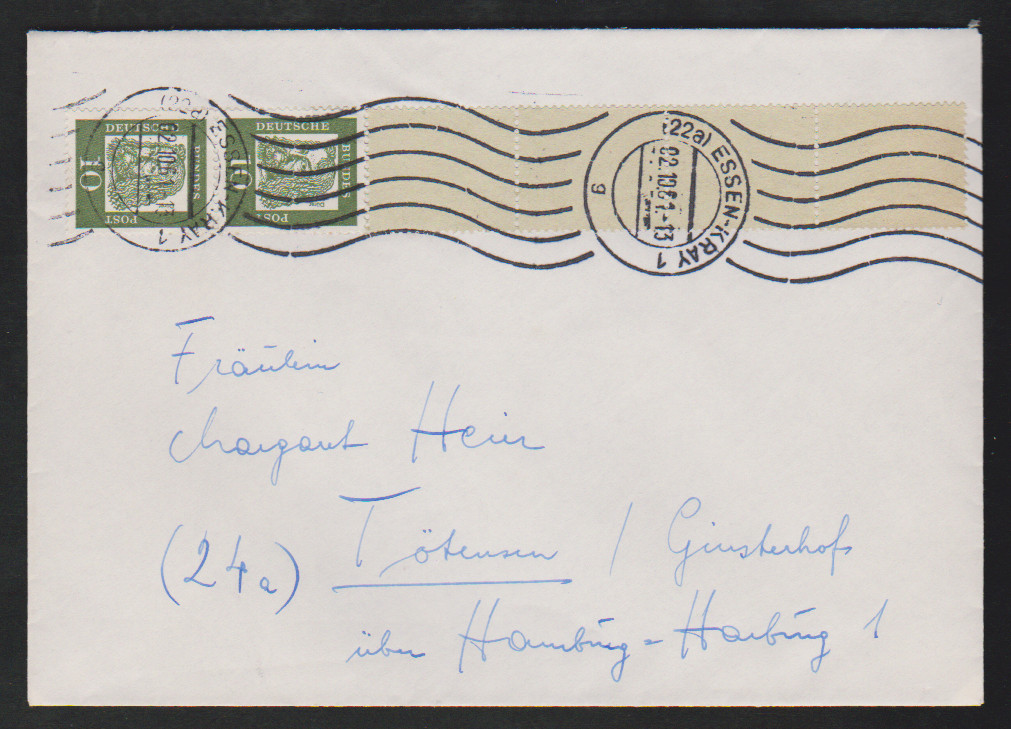 DEUTSCHE BUNDESPOST 10
DEUTSCHE BUNDESPOST 10
(22a) ESSEN-KRAY 1
(22a) ESSEN-KRAY 1
g
Fräulein
Margaret Hein
(24a) Tötensen / Ginsterhof
über Hamburg=Harburg 1